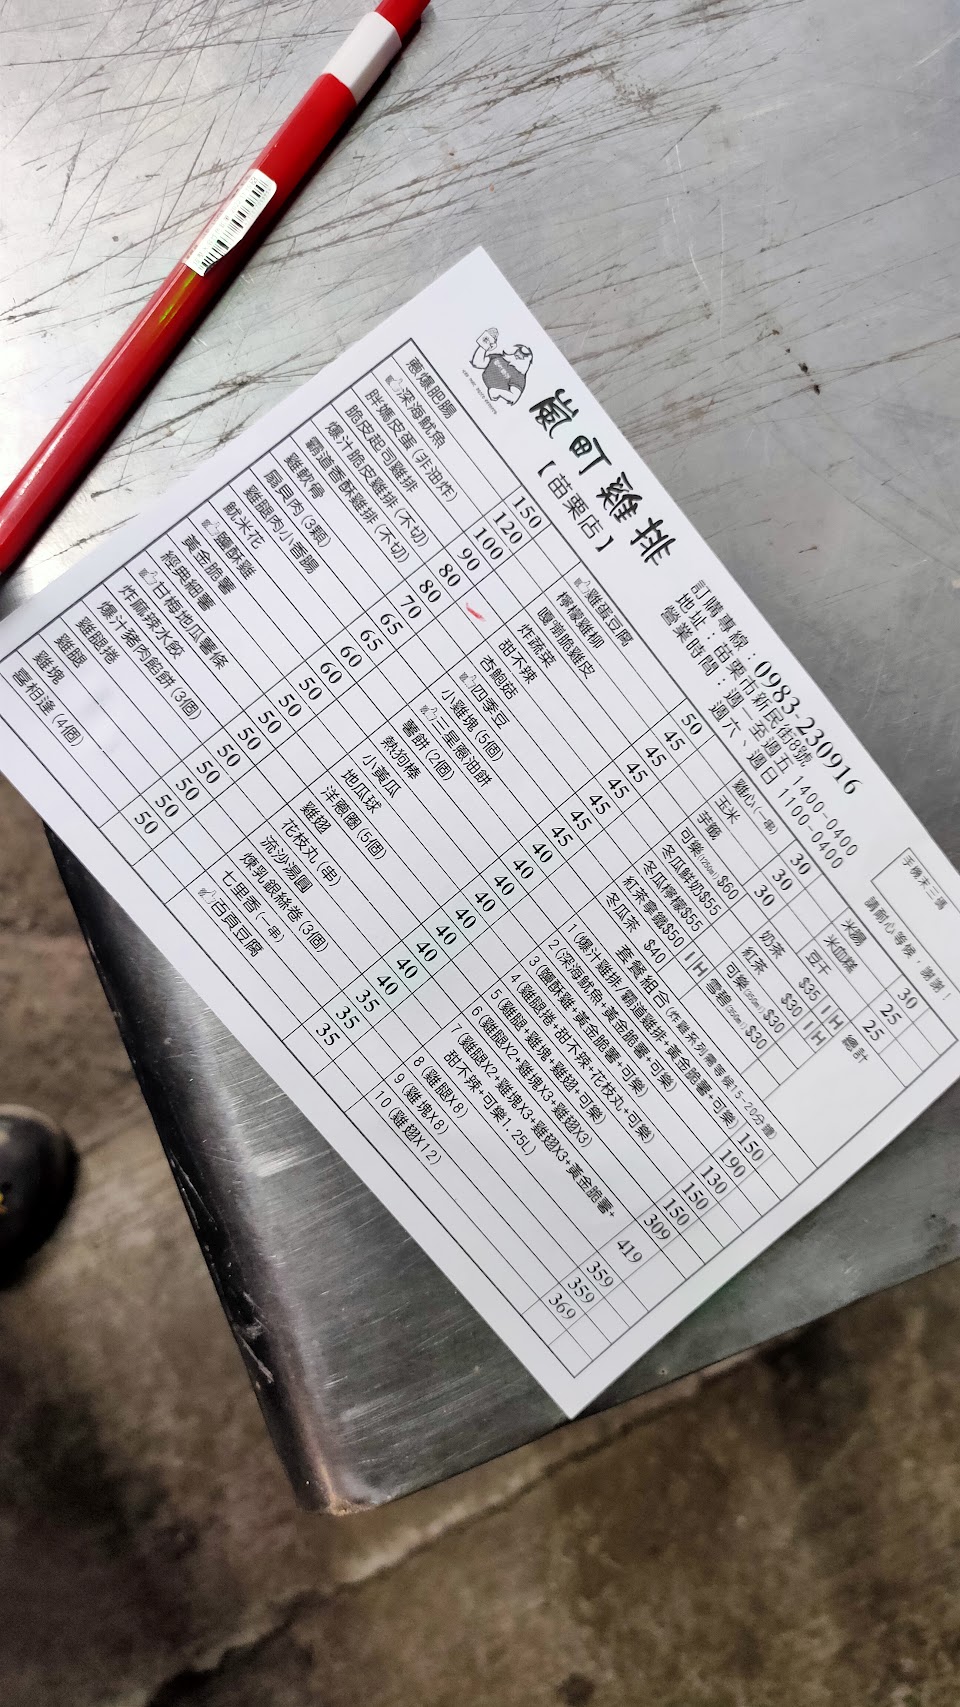 嵐町雞排
【苗栗店】
訂購專線：0983-230916
地址：苗栗市新民街8號
營業時間：週一至週五 1400-0400
週六、週日 1100-0400
手機末三碼
請耐心等候，謝謝！
蔥爆肥腸 150
深海魷魚 120
胖媽皮蛋(非油炸) 100
脆皮起司雞排 90
爆汁脆皮雞排(不切) 80
霸道香酥雞排(不切) 80
雞軟骨 70
扇貝肉(3顆) 65
雞腿肉小香腸 65
魷米花 60
鹽酥雞 60
黃金脆薯 50
經典細薯 50
甘梅地瓜薯條 50
炸麻辣水餃 50
爆汁豬肉餡餅(3個) 50
雞腿捲 50
雞腿 50
雞塊 50
喜相逢(4個) 50
雞蛋豆腐 50
檸檬雞柳 45
嘎嘣脆雞皮 45
炸蔬菜 45
甜不辣 45
杏鮑菇 45
四季豆 45
小雞塊(5個) 40
三星蔥油餅 40
薯餅(2個) 40
熱狗棒 40
小黃瓜 40
地瓜球 40
洋蔥圈(5個) 40
雞翅 40
花枝丸(串) 40
流沙湯圓 40
煉乳銀絲卷(3個) 35
七里香(一串) 35
百頁豆腐 35
雞心(一串) 30
玉米 30
芋籤 30
米腸 30
米血糕 25
豆干 25
可樂(1250ml) $60
冬瓜鮮奶$55
冬瓜檸檬$55
紅茶拿鐵$50
冬瓜茶 $40 I H
奶茶 $35 I H
紅茶 $30 I H
可樂(350ml) $30
雪碧(350ml) $30
總計
套餐組合(炸雞系列需等候15-20分鐘)
1(爆汁雞排/霸道雞排+黃金脆薯+可樂) 150
2(深海魷魚+黃金脆薯+可樂) 190
3(鹽酥雞+黃金脆薯+可樂) 130
4(雞腿捲+甜不辣+花枝丸+可樂) 150
5(雞腿+雞塊+雞翅+可樂) 150
6(雞腿X2+雞塊X3+雞翅X3) 309
7(雞腿X2+雞塊X3+雞翅X3+黃金脆薯+
甜不辣+可樂1.25L) 419
8(雞腿X8) 359
9(雞塊X8) 359
10(雞翅X12) 369